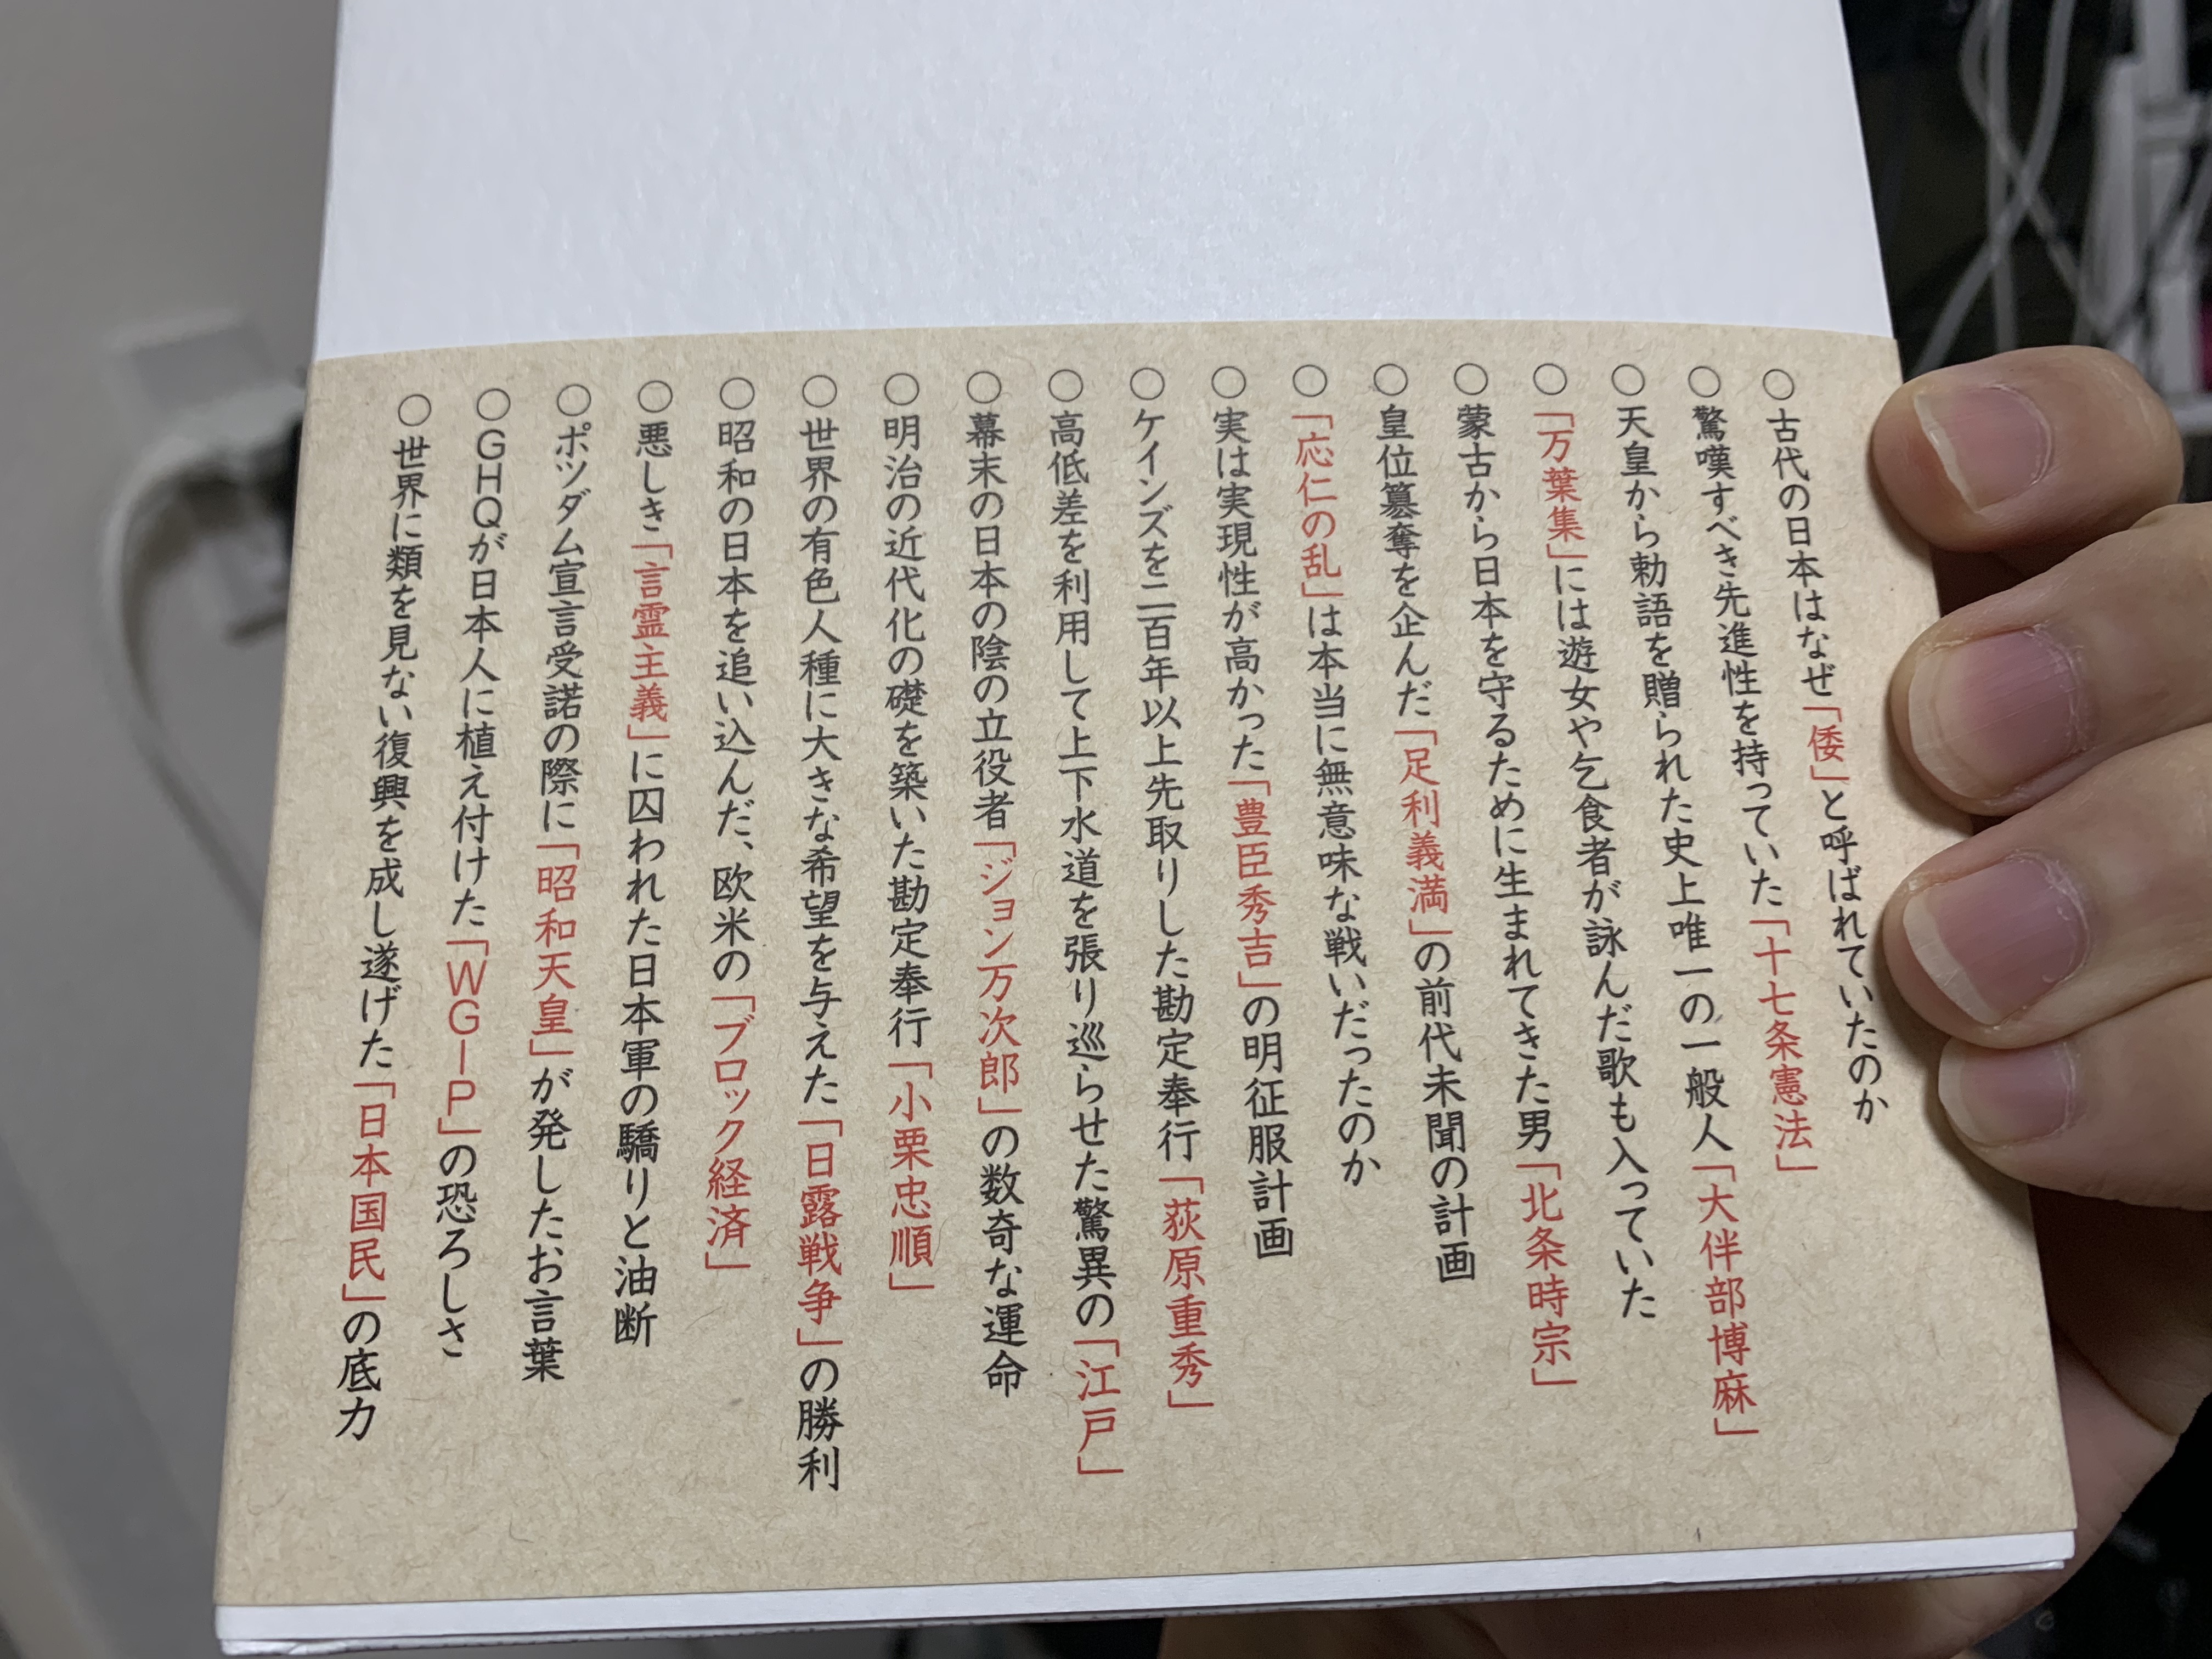 ○古代の日本はなぜ「倭」と呼ばれていたのか
○驚嘆すべき先進性を持っていた「十七条憲法」
○天皇から勅語を贈られた史上唯一の一般人「大伴部博麻」
○「万葉集」には遊女や乞食者が詠んだ歌も入っていた
○蒙古から日本を守るために生まれてきた男「北条時宗」
○皇位簒奪を企んだ「足利義満」の前代未聞の計画
○「応仁の乱」は本当に無意味な戦いだったのか
○実は実現性が高かった「豊臣秀吉」の明征服計画
○ケインズを二百年以上先取りした勘定奉行「荻原重秀」
○高低差を利用して上下水道を張り巡らせた驚異の「江戸」
○幕末の日本の陰の立役者「ジョン万次郎」の数奇な運命
○明治の近代化の礎を築いた勘定奉行「小栗忠順」
○世界の有色人種に大きな希望を与えた「日露戦争」の勝利
○昭和の日本を追い込んだ、欧米の「ブロック経済」
○悪しき「言霊主義」に囚われた日本軍の驕りと油断
○ポツダム宣言受諾の際に「昭和天皇」が発したお言葉
○GHQが日本人に植え付けた「WGIP」の恐ろしさ
○世界に類を見ない復興を成し遂げた「日本国民」の底力